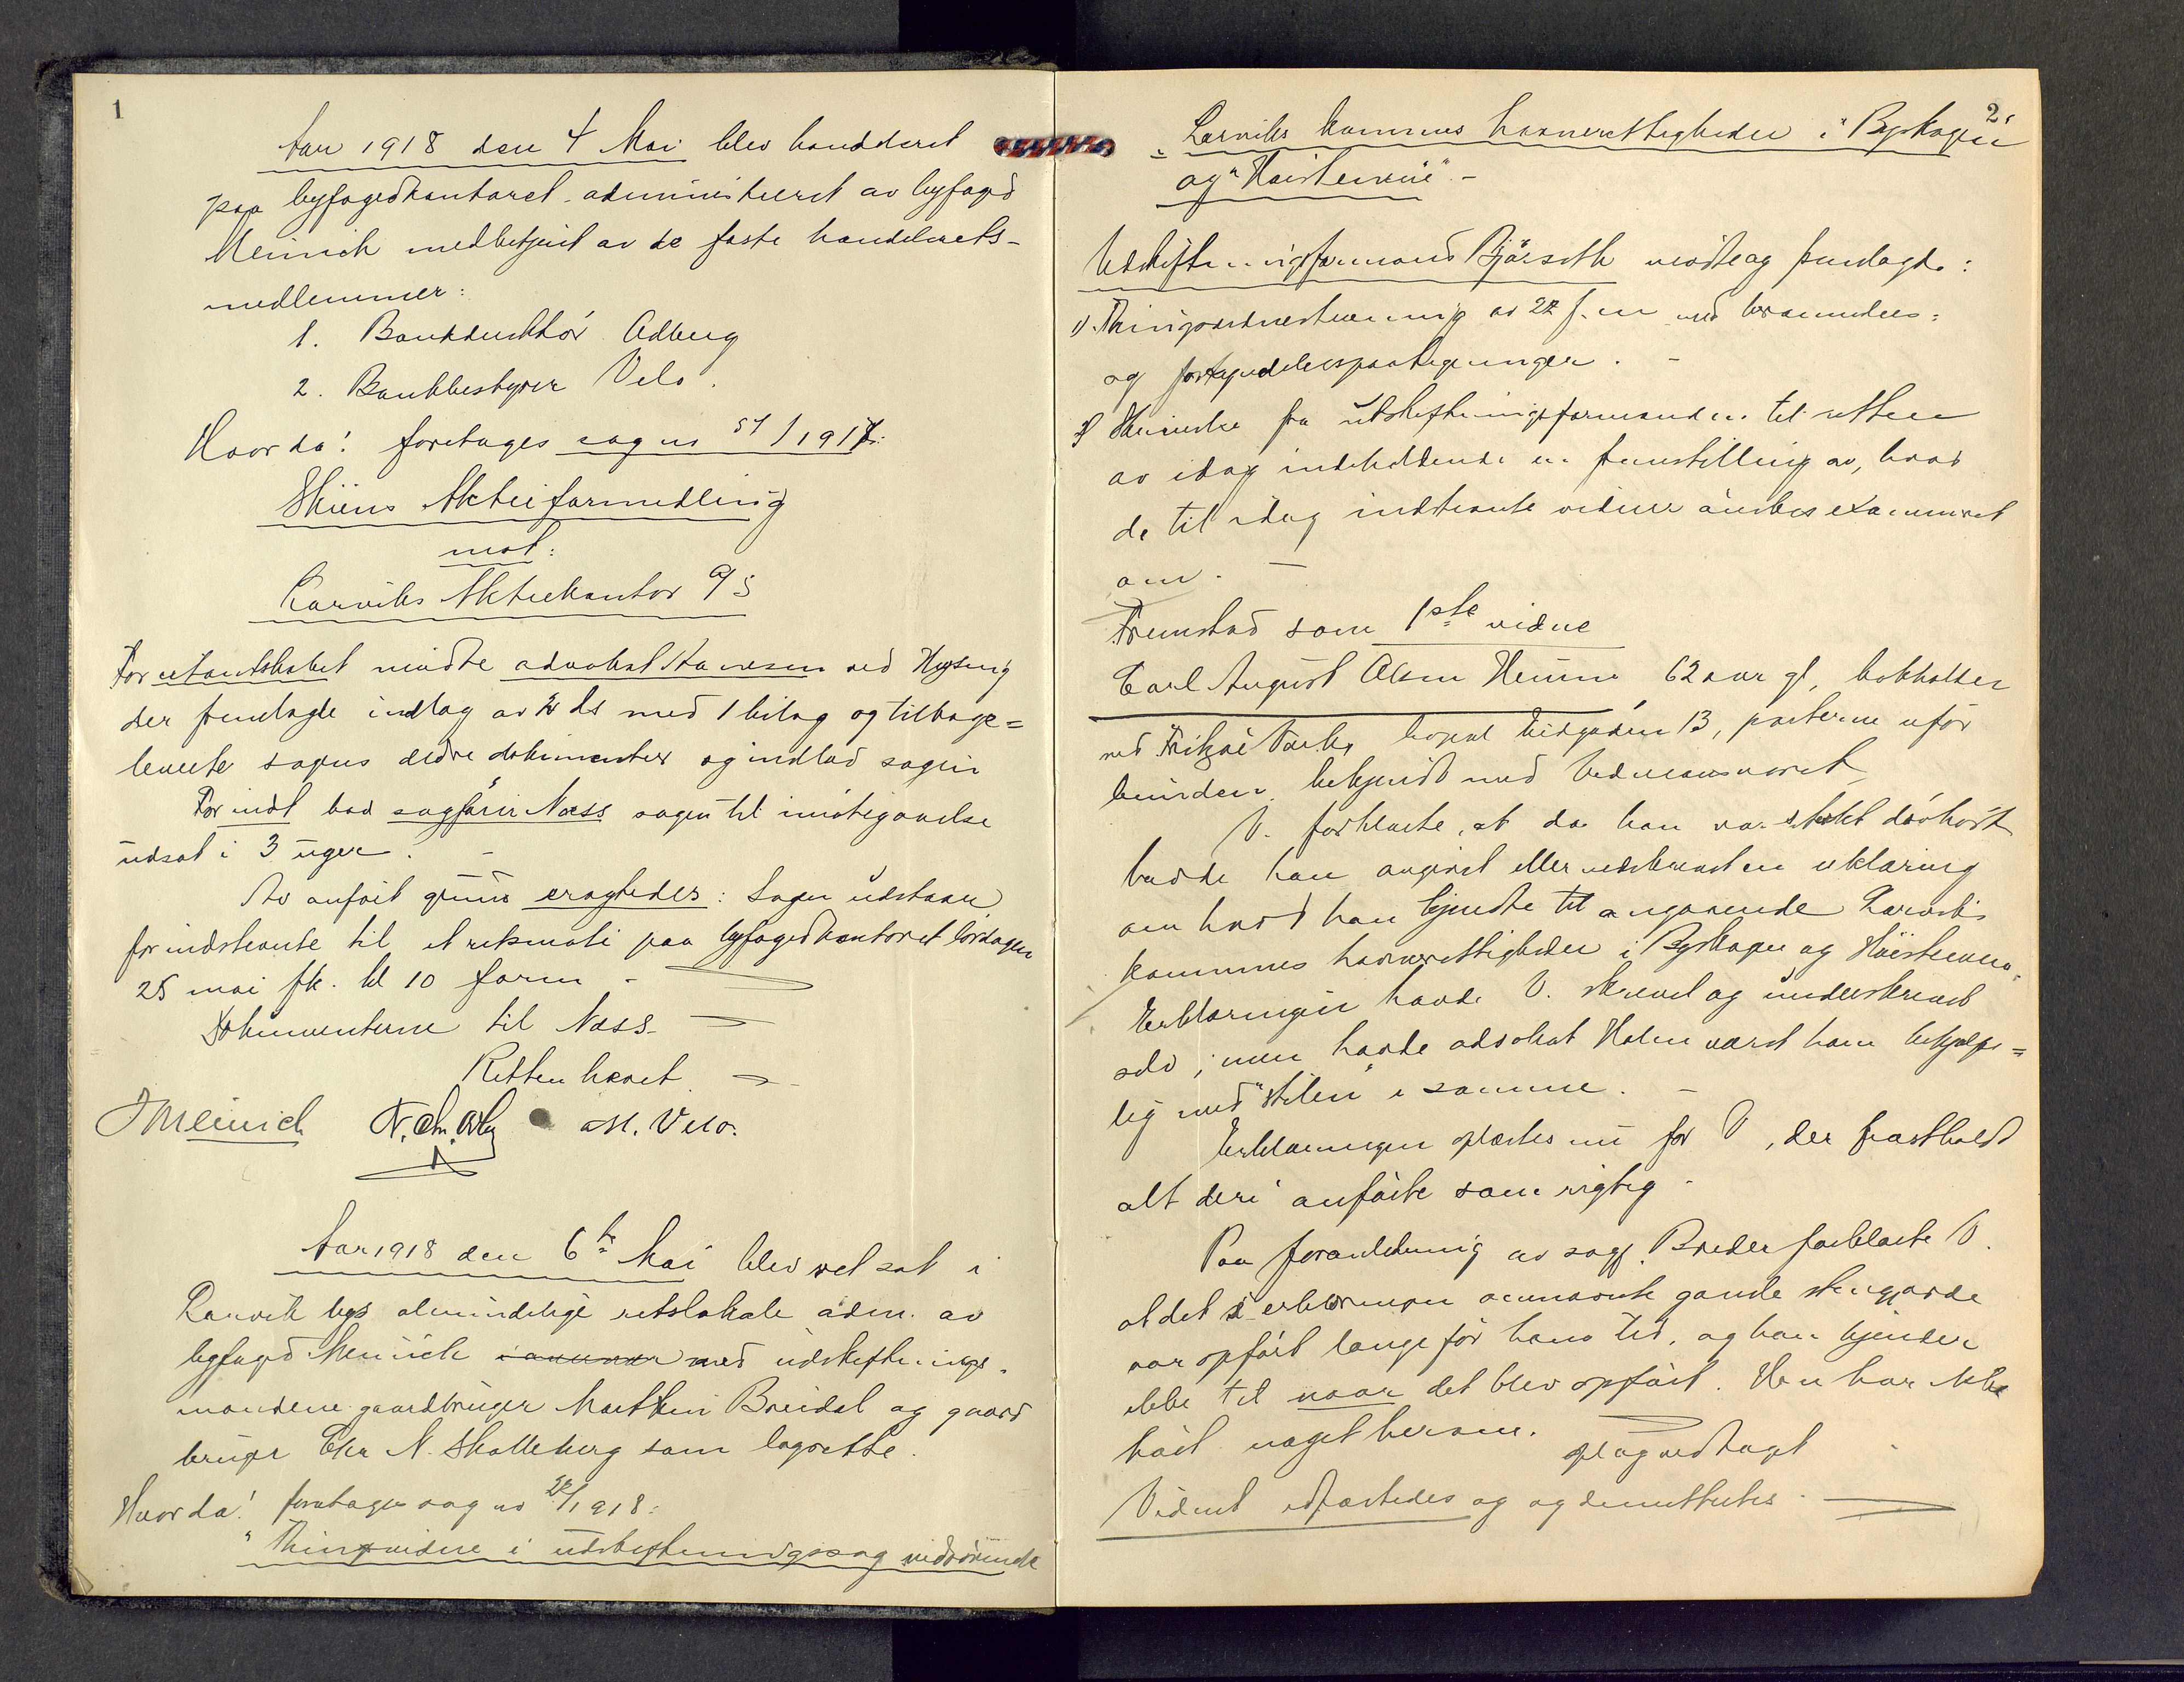 1
Aar 1918 den 4 Mai blev handelsret
paa byfogedkontoret administreret av byfoged
Meinich medbetjent av de faste handelsrets-
medlemmer:
1. Bankdirektör Adberg
2. Bankbestyrer Velo.
Hvorda! foretages sag no 57/1917:
Skiens Aktieformedling
mot:
Larviks Aktiekontor A/S
For citantskabet mödte advokat ved Hysing
der fremlagde indlæg av ds med 1 bilag og tilbage=
leverte sagens ældre dokumenter og indlod sagen
For indst bad sagförer Næss sagen til imötegaaelse
udsat i 3 uger. -
Av anfört grund eragtedes: Sagen udstaar
for indstevnte til et retsmöte paa byfogedkontoret lördagen
25 mai fk. kl 10 form -
Dokumenterne til Næss. -
Retten hævet. -
J Meinich N. Chr. M. Velo.
Aar 1918 den 6te Mai blev ret sat i
Larvik bys almindelige retslokale adm. av
byfoged Meinich med udskiftnings-
mændene gaardbruger Matthin Breidal og gaard
bruger Chr N. Skalleberg som lagrette.
Hvorda! foretages sag no 22/1918:
"Thingsvidne i udskiftningssag vedrörende
2
Larviks kommunes havnerettigheder i "Byskogen"
og "Haisteinene" -
Udskiftningsformand Bjørseth mödte og fremlagde:
1) Thingsvidnestevning av 22 f.m med berammelses=
og forkyndelsespaategninger. -
2) Skrivelse fra udskiftningsformanden til retten
av idag indeholdende en fremstilling av, hvad
de til idag indstevnte vidner önskes examineret
om. -
Fremstod som 1ste vidne
Carl August Olsen 62 aar gl, bokholder
ved Fritzöe Værk, bopæl 13, parterne ufor
bunden, bekjendt med Vidneansvaret
V. forklarte, at da han var sterkt dövhört
havde han avgivet eller nedskrevet en erklæring
om hvad han kjendte til angaaende Larviks
kommunes havnerettigheder i Byskogen og
Erklæringen havde V. skrevet og underskrevet
selv; men havde advokat Holm været ham behjelpe=
lig med "stilen" i samme. -
Erklæringen oplæstes nu for V, der fastholdt
alt deri anförte som rigtig -
Paa foranledning av sagf. Breder forklarte V.
at det i erklæringen omnævnte gamle stengjærde
var opfört længe för hans tid, og han kjender
ikke til naar det blev opfört. Han har ikke
hört noget herom. opl og vedtaget
Vidnet edfæstedes og demitteredes. -